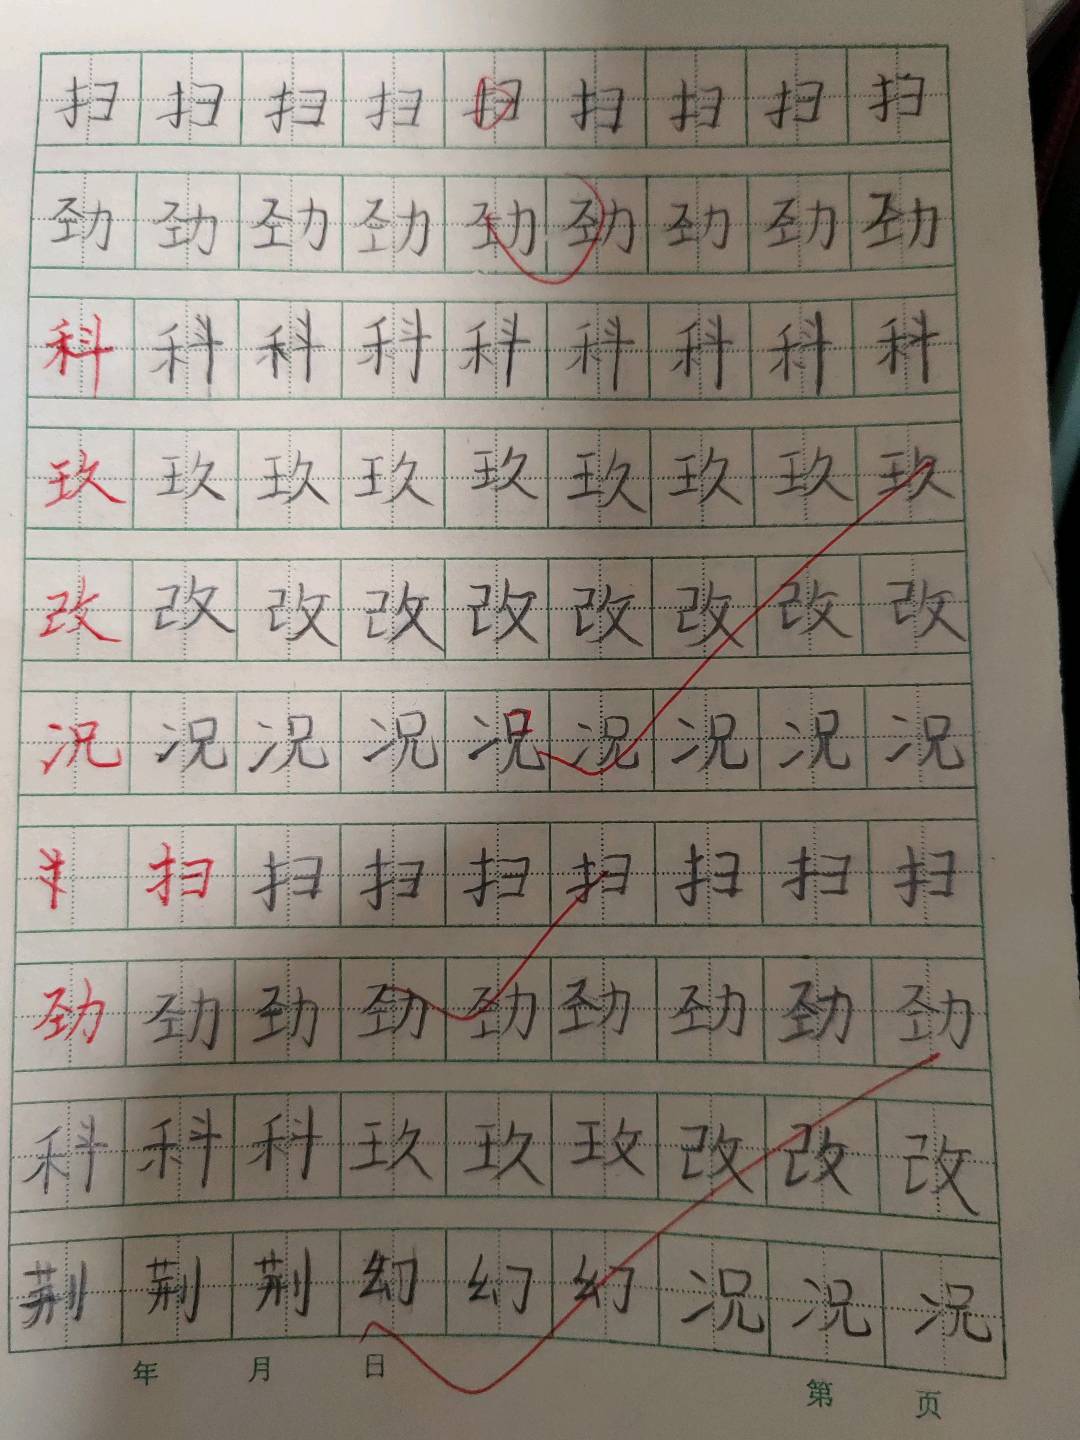 扫扫扫扫扫扫扫扫扫
劲劲劲劲劲劲劲劲劲
科科科科科科科科科
玖玖玖玖玖玖玖玖玖
改改改改改改改改改
况况况况况况况况况
扫扫扫扫扫扫扫扫
劲劲劲劲劲劲劲劲劲
科科科玖玖玫改改改
荆荆荆幻幻幻况况况
年 月 日 第 页